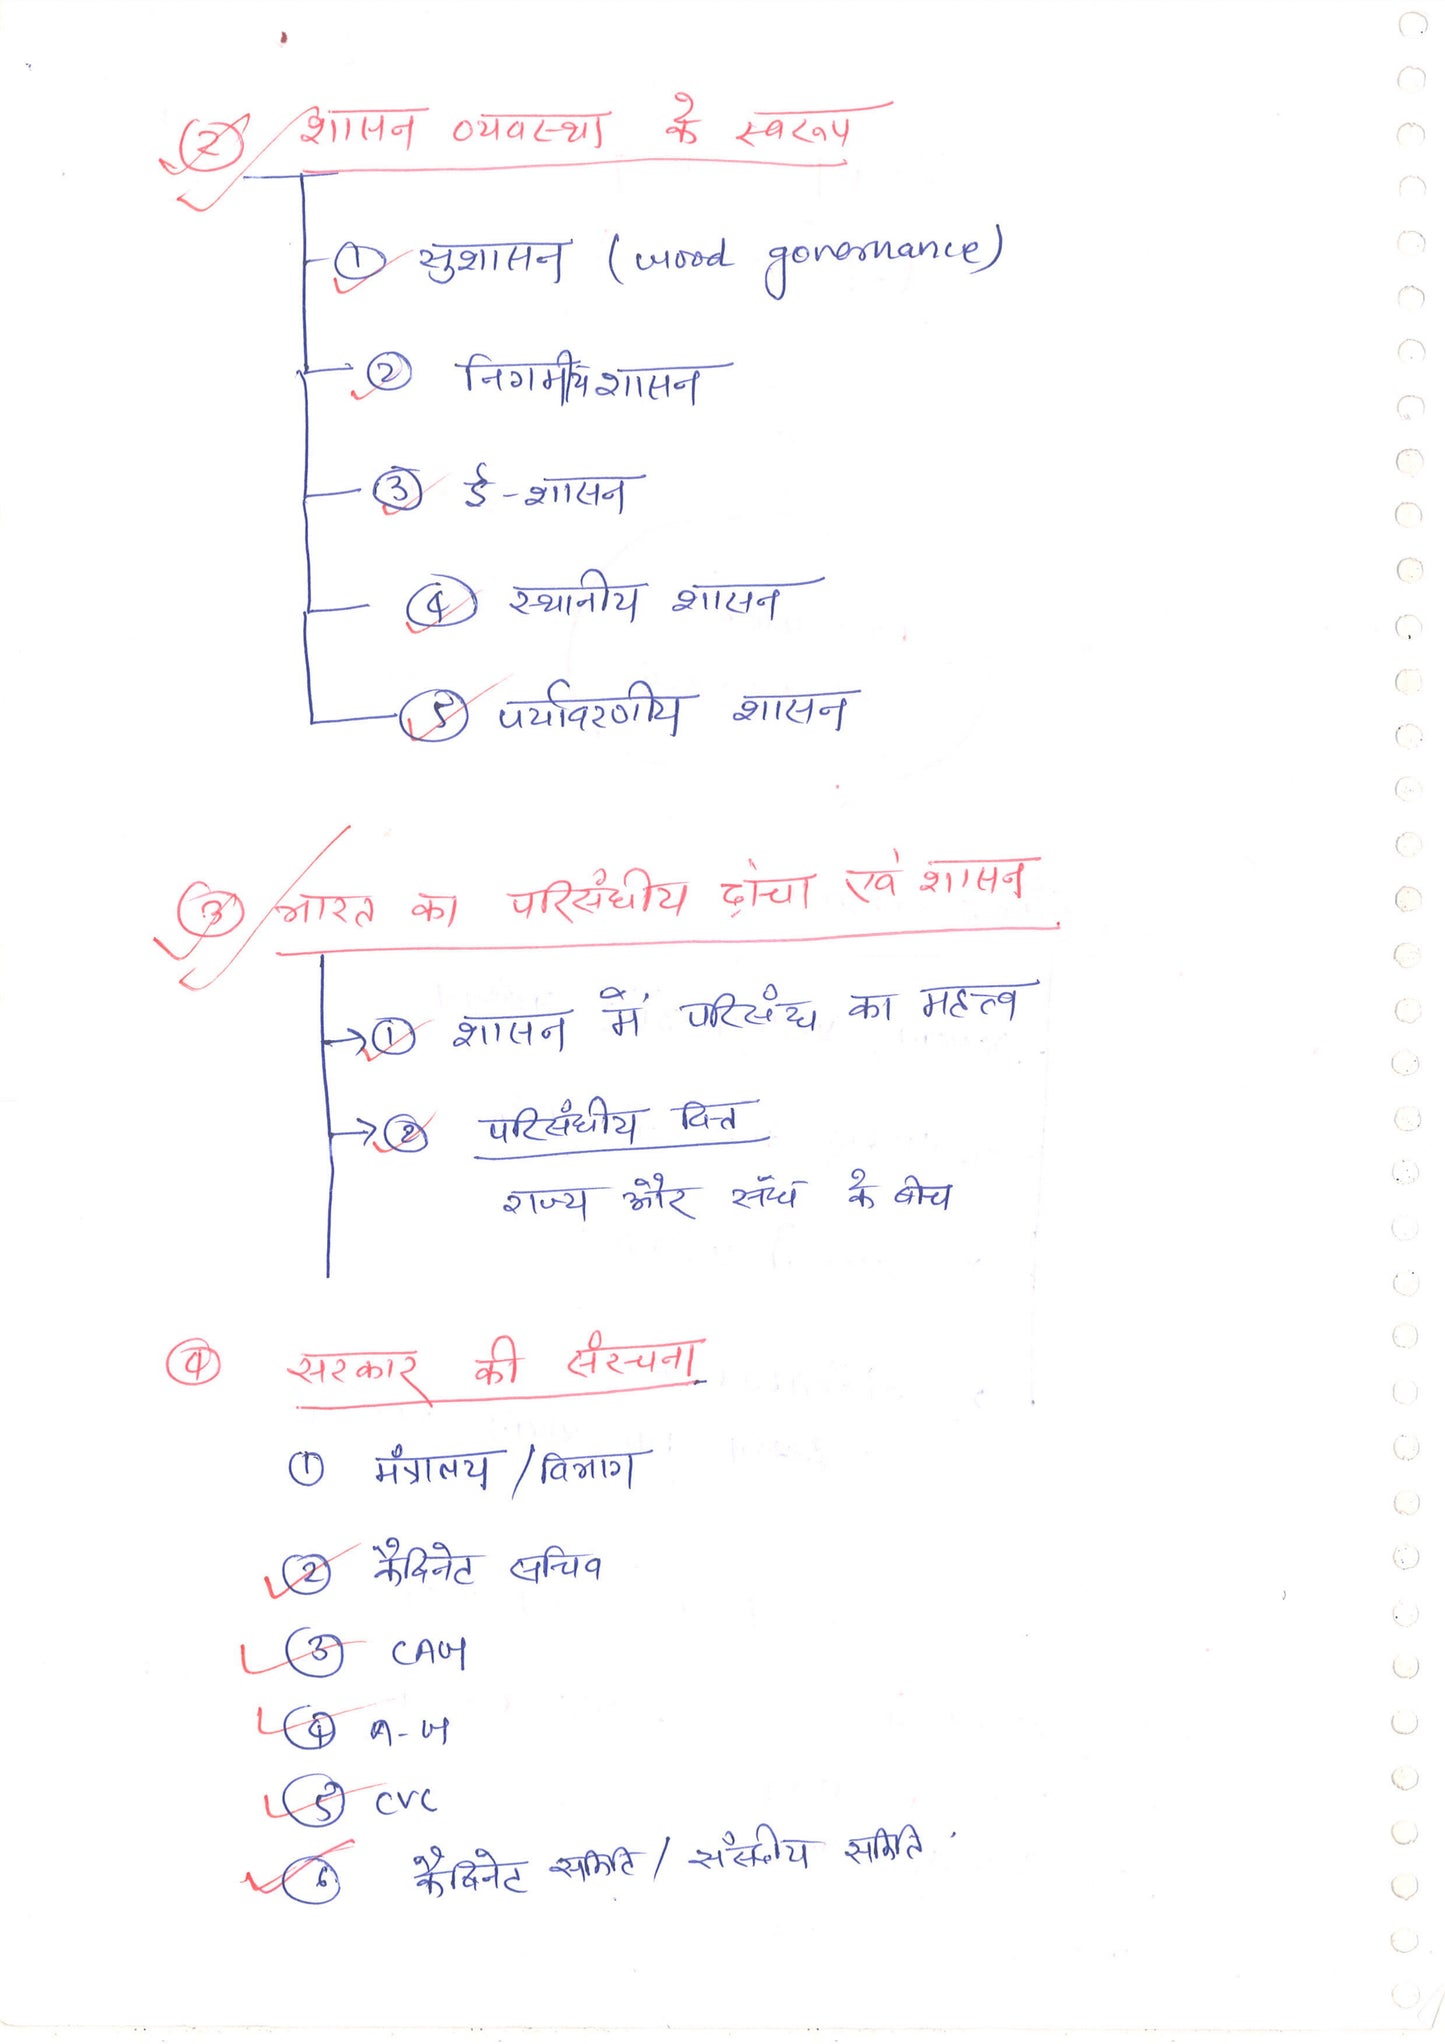 ② शासन व्यवस्था के स्वरूप
① सुशासन (Good governance)
② निगमीय शासन
③ ई-शासन
④ स्थानीय शासन
⑤ पर्यावरणीय शासन
③ भारत का परिसंघीय ढ़ांचा एवं शासन
① शासन में परिसंघ का महत्व
② परिसंघीय वित्त
राज्य और संघ के बीच
④ सरकार की संरचना
① मंत्रालय / विभाग
② कैबिनेट सचिव
③ CAG
④ A-G
⑤ CVC
⑥ कैबिनेट समिति / संसदीय समिति